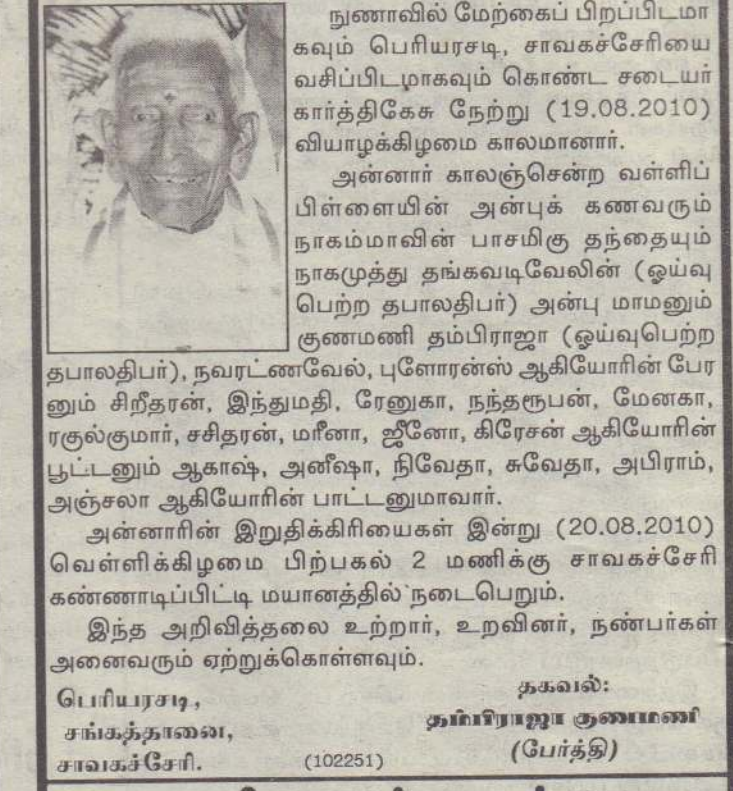 நுணாவில் மேற்கைப் பிறப்பிடமா
கவும் பெரியரசடி, சாவகச்சேரியை
வசிப்பிடமாகவும் கொண்ட சடையர்
கார்த்திகேசு நேற்று (19.08.2010)
வியாழக்கிழமை காலமானார்.
அன்னார் காலஞ்சென்ற வள்ளிப்
பிள்ளையின் அன்புக் கணவரும்
நாகம்மாவின் பாசமிகு தந்தையும்
நாகமுத்து தங்கவடிவேலின் (ஓய்வு
பெற்ற தபாலதிபர்) அன்பு மாமனும்
குணமணி தம்பிராஜா (ஓய்வுபெற்ற
தபாலதிபர்), நவரட்ணவேல், புளோரன்ஸ் ஆகியோரின் பேர
னும் சிறீதரன், இந்துமதி, ரேனுகா, நந்தரூபன், மேனகா,
ரகுல்குமார், சசிதரன், மரீனா, ஜீனோ, கிரேசன் ஆகியோரின்
பூட்டனும் ஆகாஷ், அனீஷா, நிவேதா, சுவேதா, அபிராம்,
அஞ்சலா ஆகியோரின் பாட்டனுமாவார்.
அன்னாரின் இறுதிக்கிரியைகள் இன்று (20.08.2010)
வெள்ளிக்கிழமை பிற்பகல் 2 மணிக்கு சாவகச்சேரி
கண்ணாடிப்பிட்டி மயானத்தில் நடைபெறும்.
இந்த அறிவித்தலை உற்றார், உறவினர், நண்பர்கள்
அனைவரும் ஏற்றுக்கொள்ளவும்.
பெரியரசடி,
சங்கத்தானை,
சாவகச்சேரி.
(102251)
தகவல்:
தம்பிராஜா குணமணி
(பேர்த்தி)